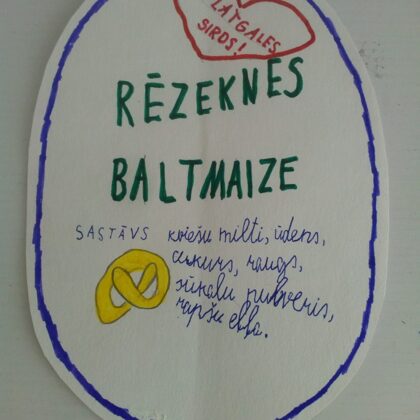 LATGALES
SIRDS!
RĒZEKNES
BALTMAIZE
SASTĀVS kviešu milti, ūdens,
cukurs, raugs,
sūkalu pulveris,
rapšu eļļa.